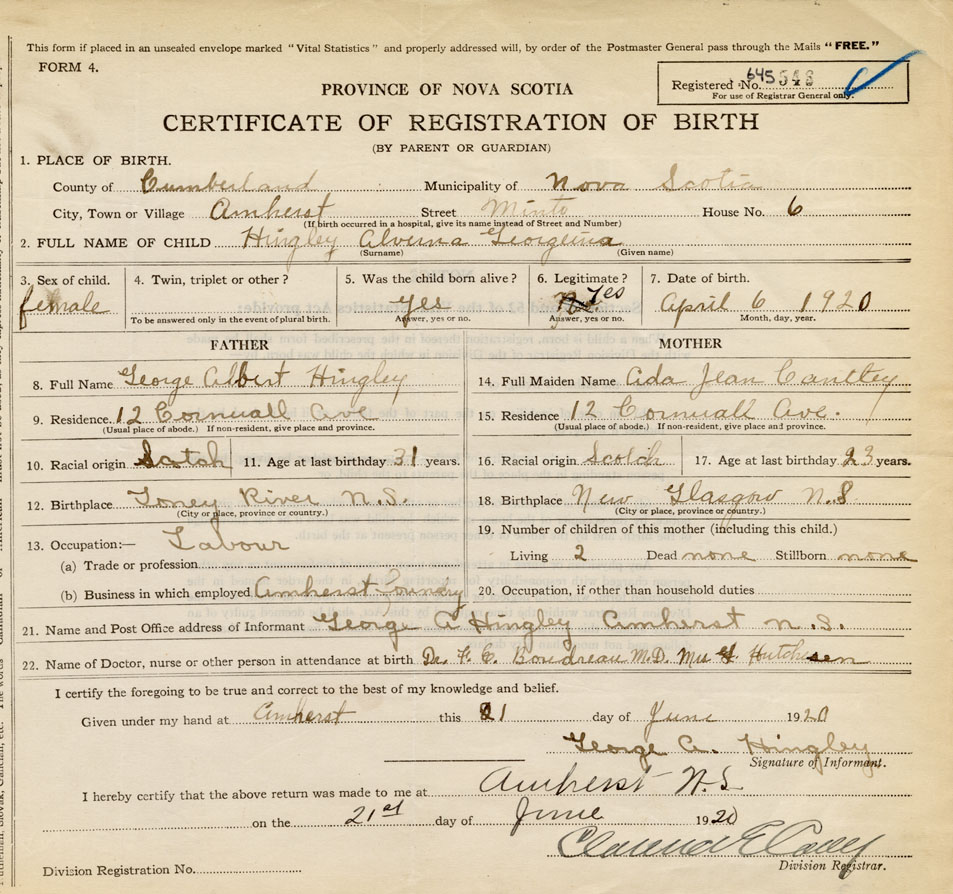 This form if placed in an unsealed envelope marked "Vital Statistics" and properly addressed will, by order of the Postmaster General pass through the Mails "FREE."
FORM 4.
Registered No. 645 548
For use of Registrar General only.
PROVINCE OF NOVA SCOTIA
CERTIFICATE OF REGISTRATION OF BIRTH
(BY PARENT OR GUARDIAN)
1. PLACE OF BIRTH.
County of Cumberland Municipality of Nova Scotia
City, Town or Village Amherst Street Minto House No. 6
(If birth occurred in a hospital, give its name instead of Street and Number)
2. FULL NAME OF CHILD Hingley Alverna Georgina
(Surname) (Given name)
3. Sex of child. 4. Twin, triplet or other? 5. Was the child born alive? 6. Legitimate? 7. Date of birth.
female Yes Yes April 6 1920
To be answered only in the event of plural birth. Answer, yes or no. Answer, yes or no. Month, day, year.
FATHER MOTHER
8. Full Name George Albert Hingley 14. Full Maiden Name Ada Jean Cantley
9. Residence 12 Cornwall Ave 15. Residence 12 Cornwall Ave.
(Usual place of abode.) If non-resident, give place and province. (Usual place of abode.) If non-resident, give place and province.
10. Racial origin Scotch 11. Age at last birthday 31 years. 16. Racial origin Scotch 17. Age at last birthday 23 years.
12. Birthplace Toney River N.S. 18. Birthplace New Glasgow N.S
(City or place, province or country.) (City or place, province or country.)
13. Occupation:— Labour 19. Number of children of this mother (including this child.)
(a) Trade or profession Living 2 Dead none Stillborn none
(b) Business in which employed Amherst Foundry 20. Occupation, if other than household duties
21. Name and Post Office address of Informant George A Hingley Amherst N.S.
22. Name of Doctor, nurse or other person in attendance at birth Dr. F. E. Boudreau M.D.
I certify the foregoing to be true and correct to the best of my knowledge and belief.
Given under my hand at Amherst this 21 day of June 1920
George A. Hingley
Signature of Informant.
I hereby certify that the above return was made to me at Amherst N.S.
on the 21st day of June 1920
Division Registrar.
Division Registration No.